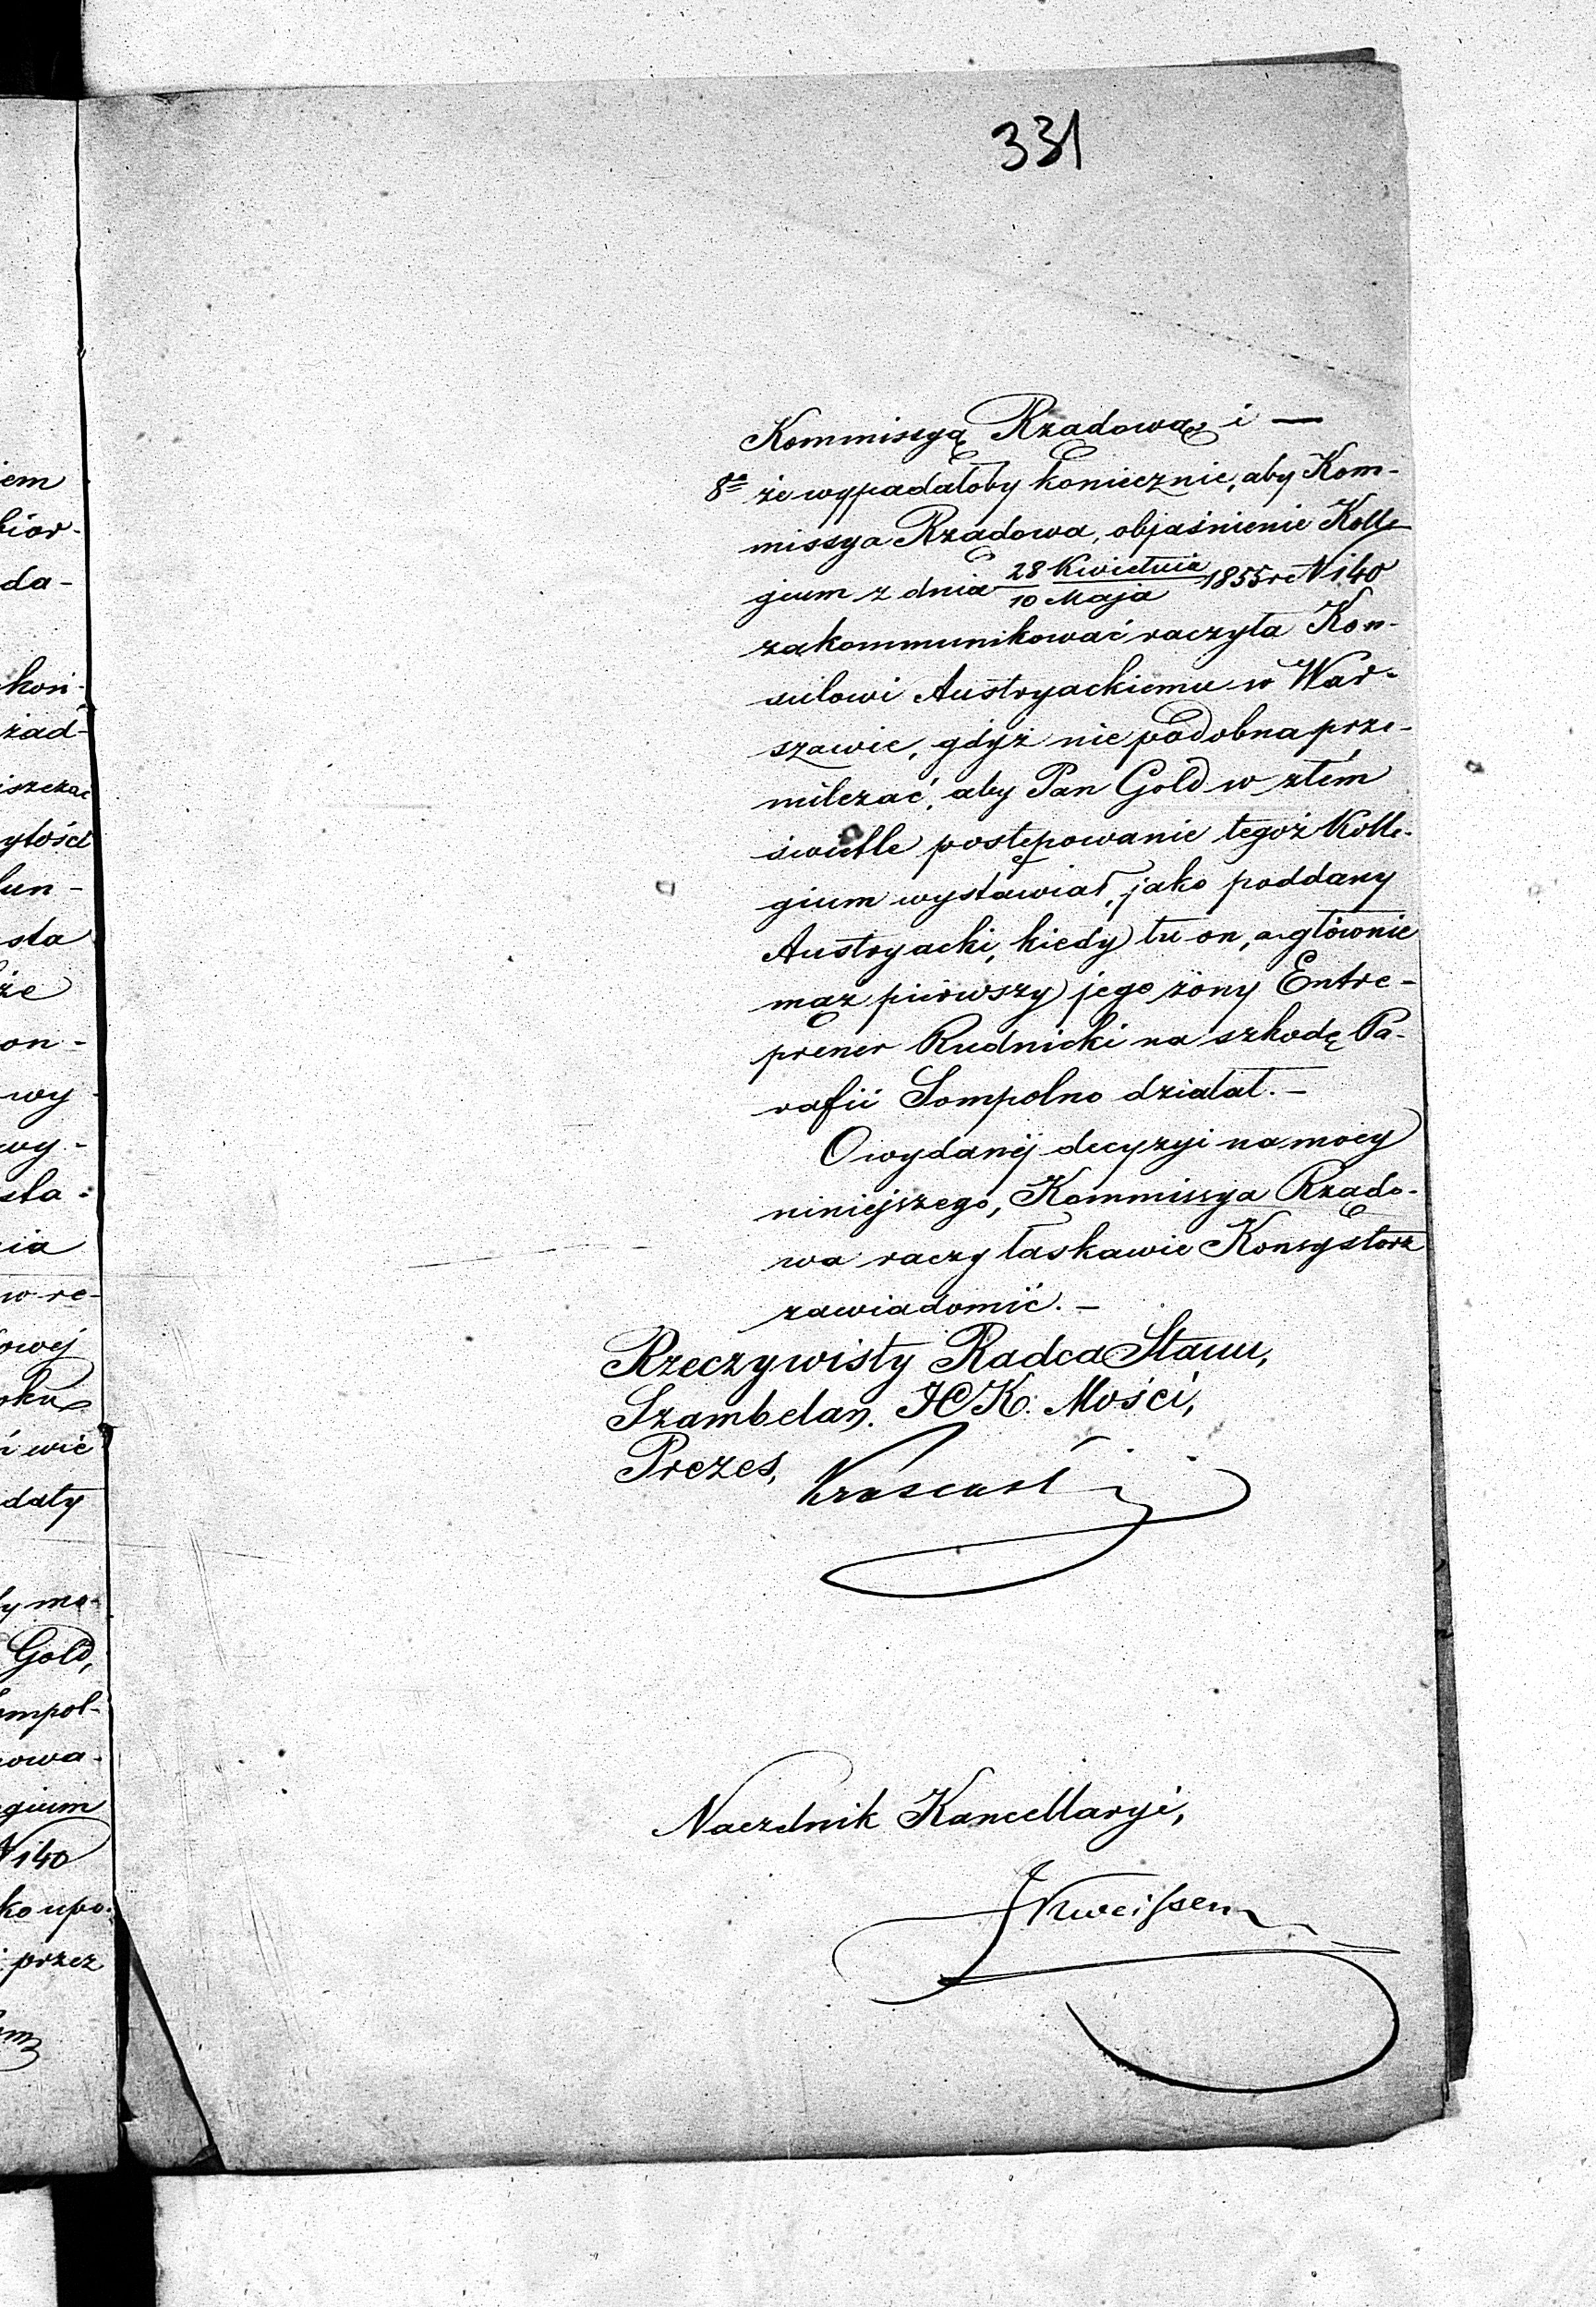 331
Kommissyą Rządową, i —
8e że wypadałoby koniecznie, aby Kom-
missya Rządowa, objaśnienie Kolle
gium z dnia 28 Kwietnia / 10 Maja 1855 r. N 140
zakommunikować raczyła Kon-
sulowi Austryackiemu w War-
szawie, gdyż nie podobna prze-
milczać, aby Pan Gold w złém
świetle postępowanie tegoż Kolle-
gium wystawiał, jako poddany
Austryacki, kiedy tu on, a głównie
mąż piérwszy jego żony Entre-
prener Rudnicki na szkodę Pa-
rafii Sompolno działał. —
O wydanéj decyzyi na mocy
niniejszego, Kommissya Rządo-
wa raczy łaskawie Konsystorz
zawiadomić. —
Rzeczywisty Radca Stanu,
Szambelan J. C. K. Mości,
Prezes,
Naczelnik Kancellaryi,
iem
bior-
da-
koń-
żad-
iszczac
ytości
lun-
sta
że
on-
wy-
wy-
sta-
nia
w re-
owéj
oku
i wie
daty
y ma-
Gold,
ompol-
nowa-
gium
N 140
ko upo-
i przez